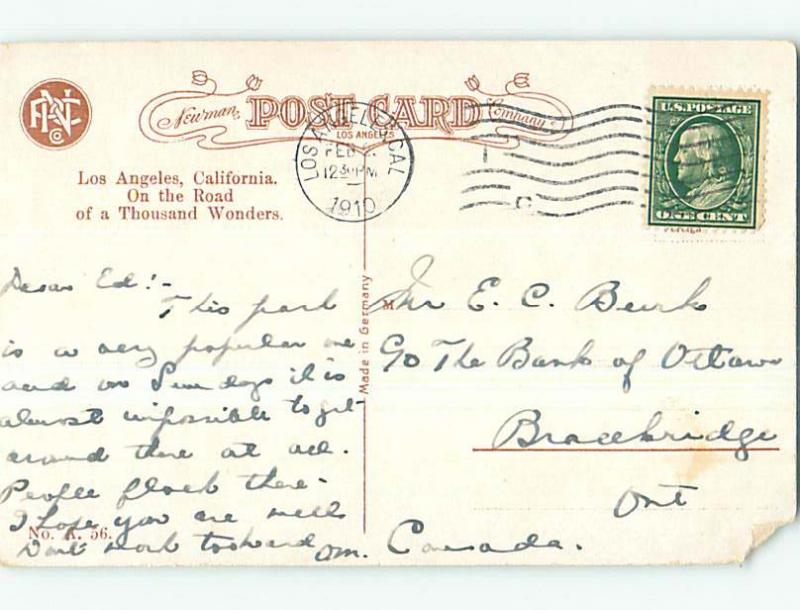 Newman POST CARD Company
LOS ANGELES
Los Angeles, California.
On the Road
of a Thousand Wonders.
LOS ANGELES, CAL
FEB
12 30 PM
1910
U.S. POSTAGE
ONE CENT
Dear Ed! -
This park
is a very popular one
and on Sundays it is
almost impossible to get
around there at all.
People flock there -
I hope you are well
No. K. 56.
Dont work too hard
Made in Germany
M
Mr E. C.
C/o The Bank of Ottawa
Bracebridge
Ont
Canada.